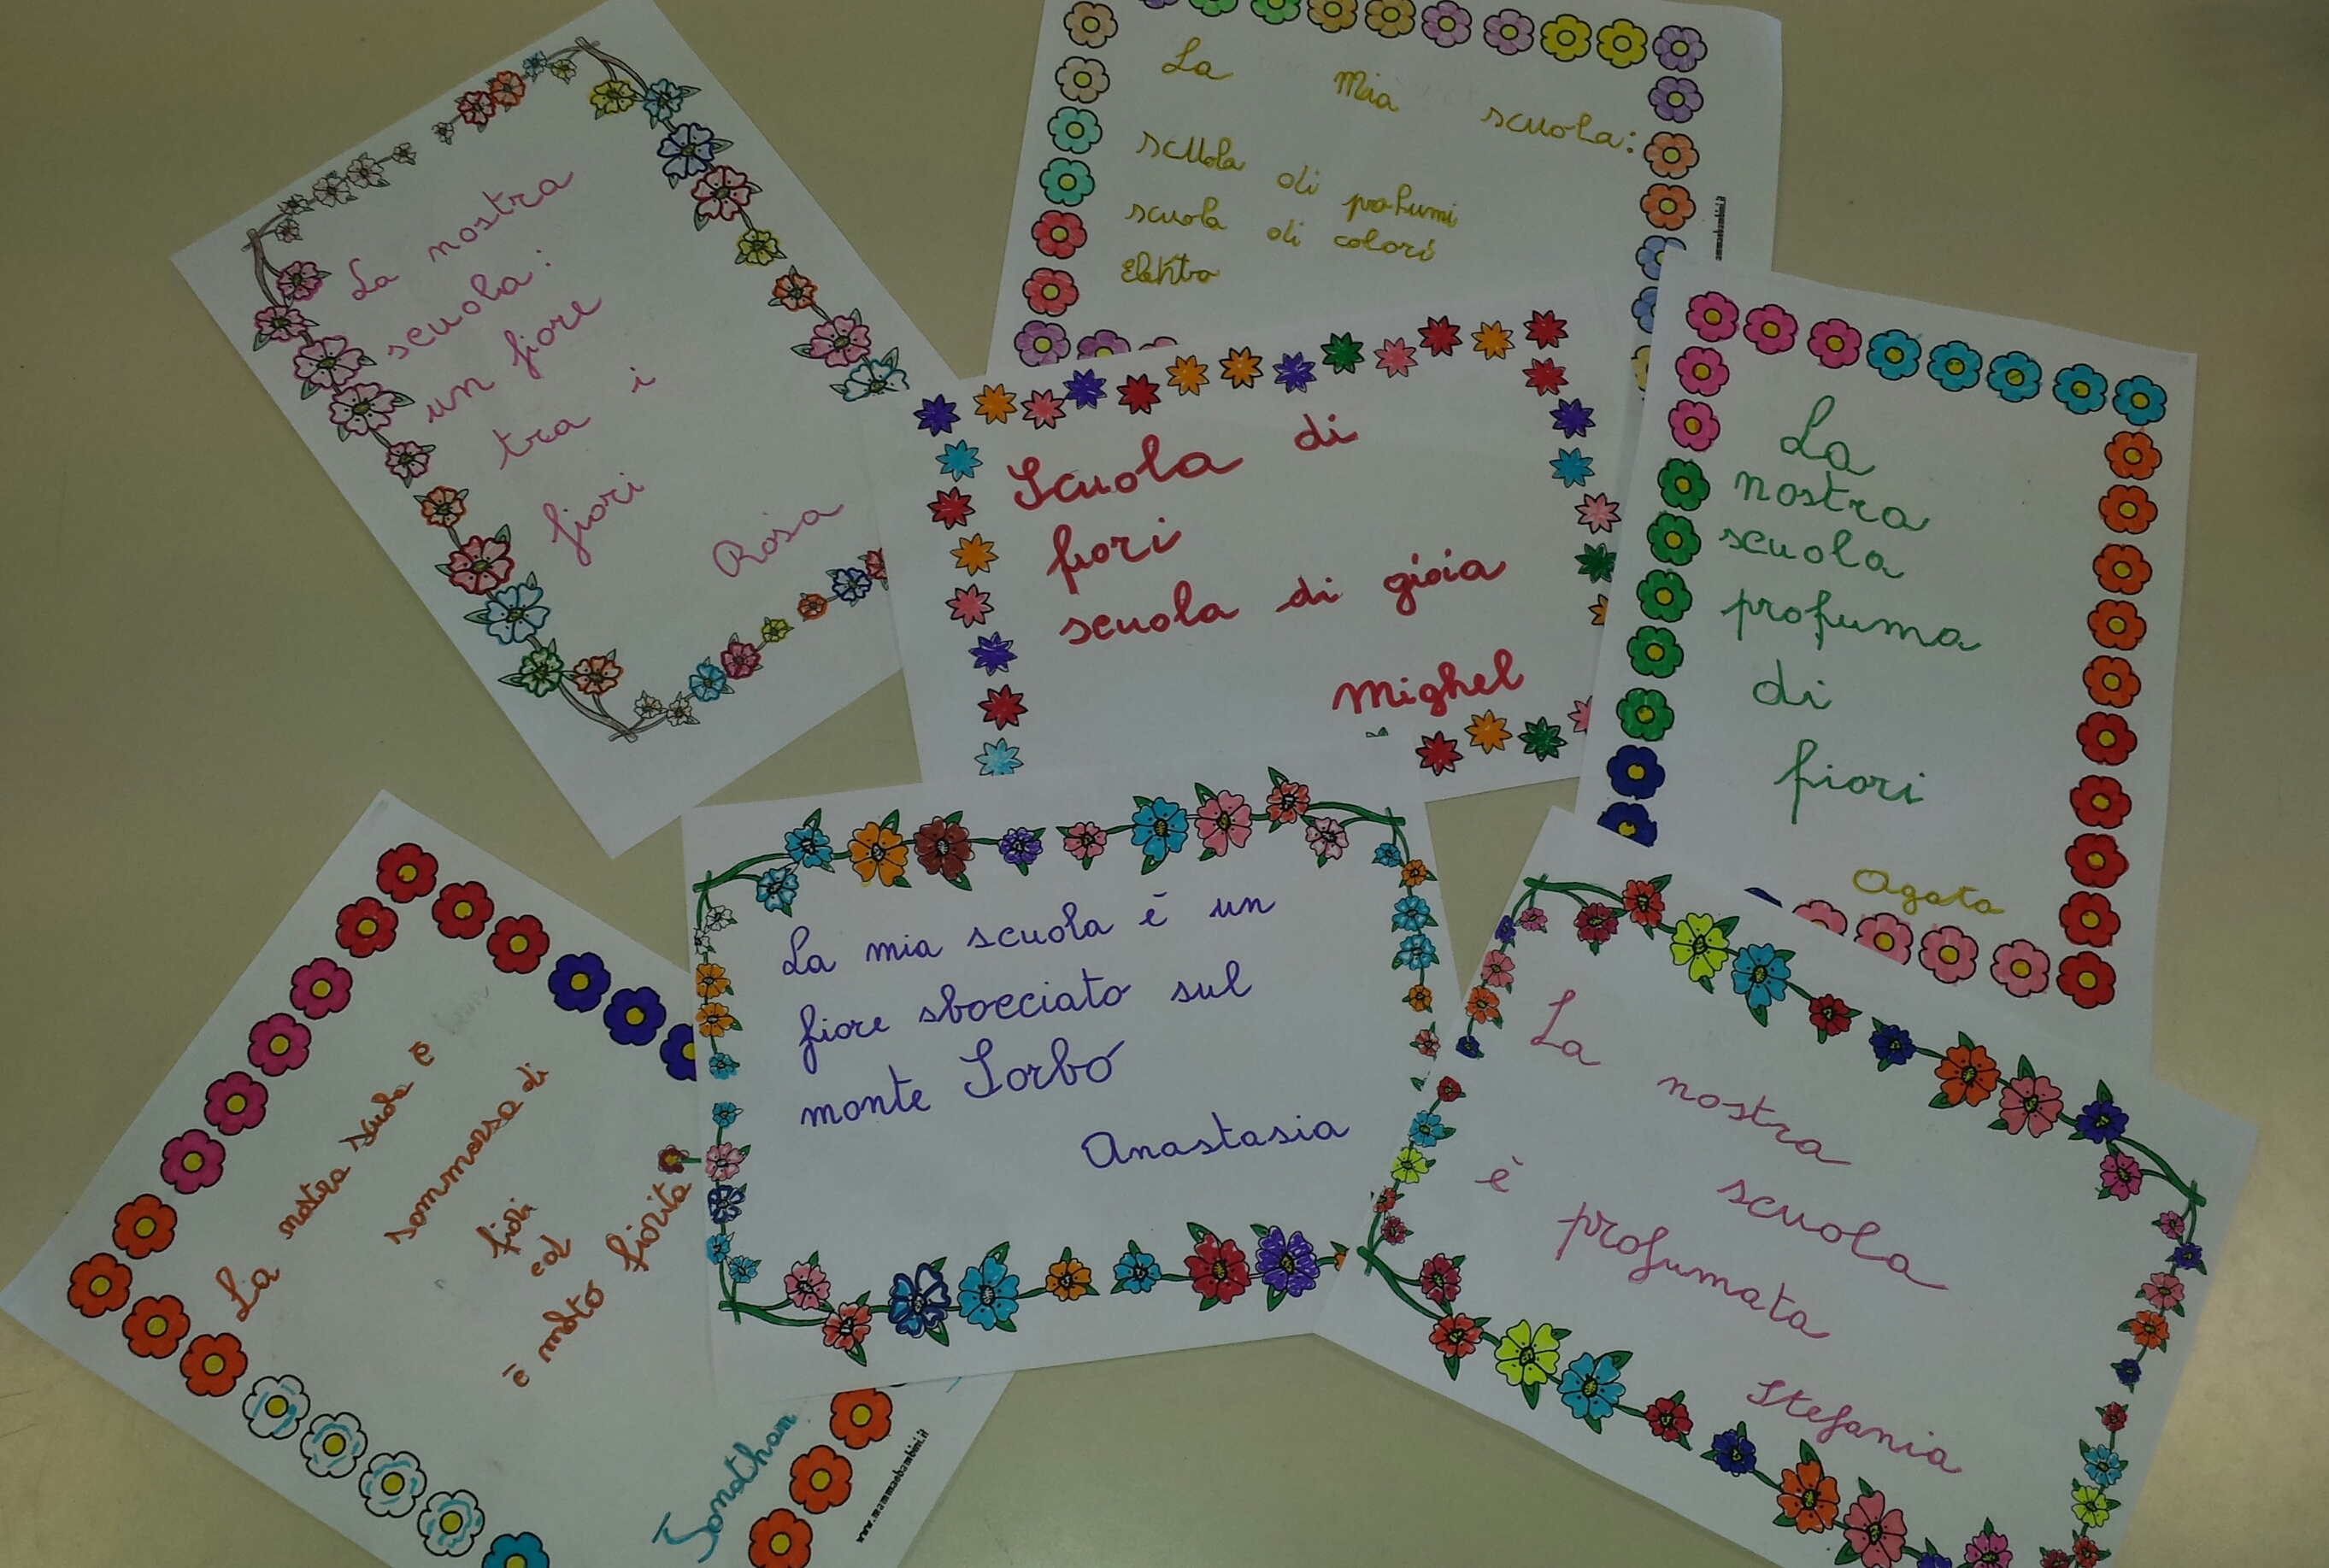 La nostra
scuola:
un fiore
tra i
fiori
Rosa
La Mia scuola:
scuola di profumi
scuola di colori
Elektra
ammaebambini.it
Scuola di
fiori
scuola di gioia
Mighel
La
nostra
scuola
profuma
di
fiori
Agata
La nostra scuola è
sommersa di
fiori
ed
è molto fiorita
Jonathan
www.mammaebambini.it
La mia scuola è un
fiore sbocciato sul
monte Sorbo
Anastasia
La nostra scuola
è profumata
Stefania